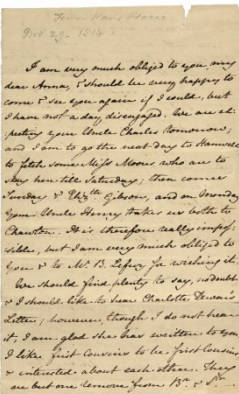 Nov. 29. 1814
I am very much obliged to you, my
dear Anna, & should be very happy to
come & see you again if I could, but
I have not a day disengaged. We are ex-
pecting your Uncle Charles tomorrow;
and I am to go the next day to Hanwell
to fetch some Miss Moores who are to
stay here till Saturday; then comes
Sunday & Eliz:th Gibson, and on Monday
Your Uncle Henry takes us both to
Chawton. It is therefore really impos-
sible, but I am very much obliged to
You & to Mr B. Lefroy for wishing it.
We should find plenty to say, no doubt
& I should like to hear Charlotte Dewar's
Letter; however, though I do not hear
it, I am glad she has written to you.
I like first Cousins to be first Cousins
& interested about each other. They
are but one remove from Br & Sr